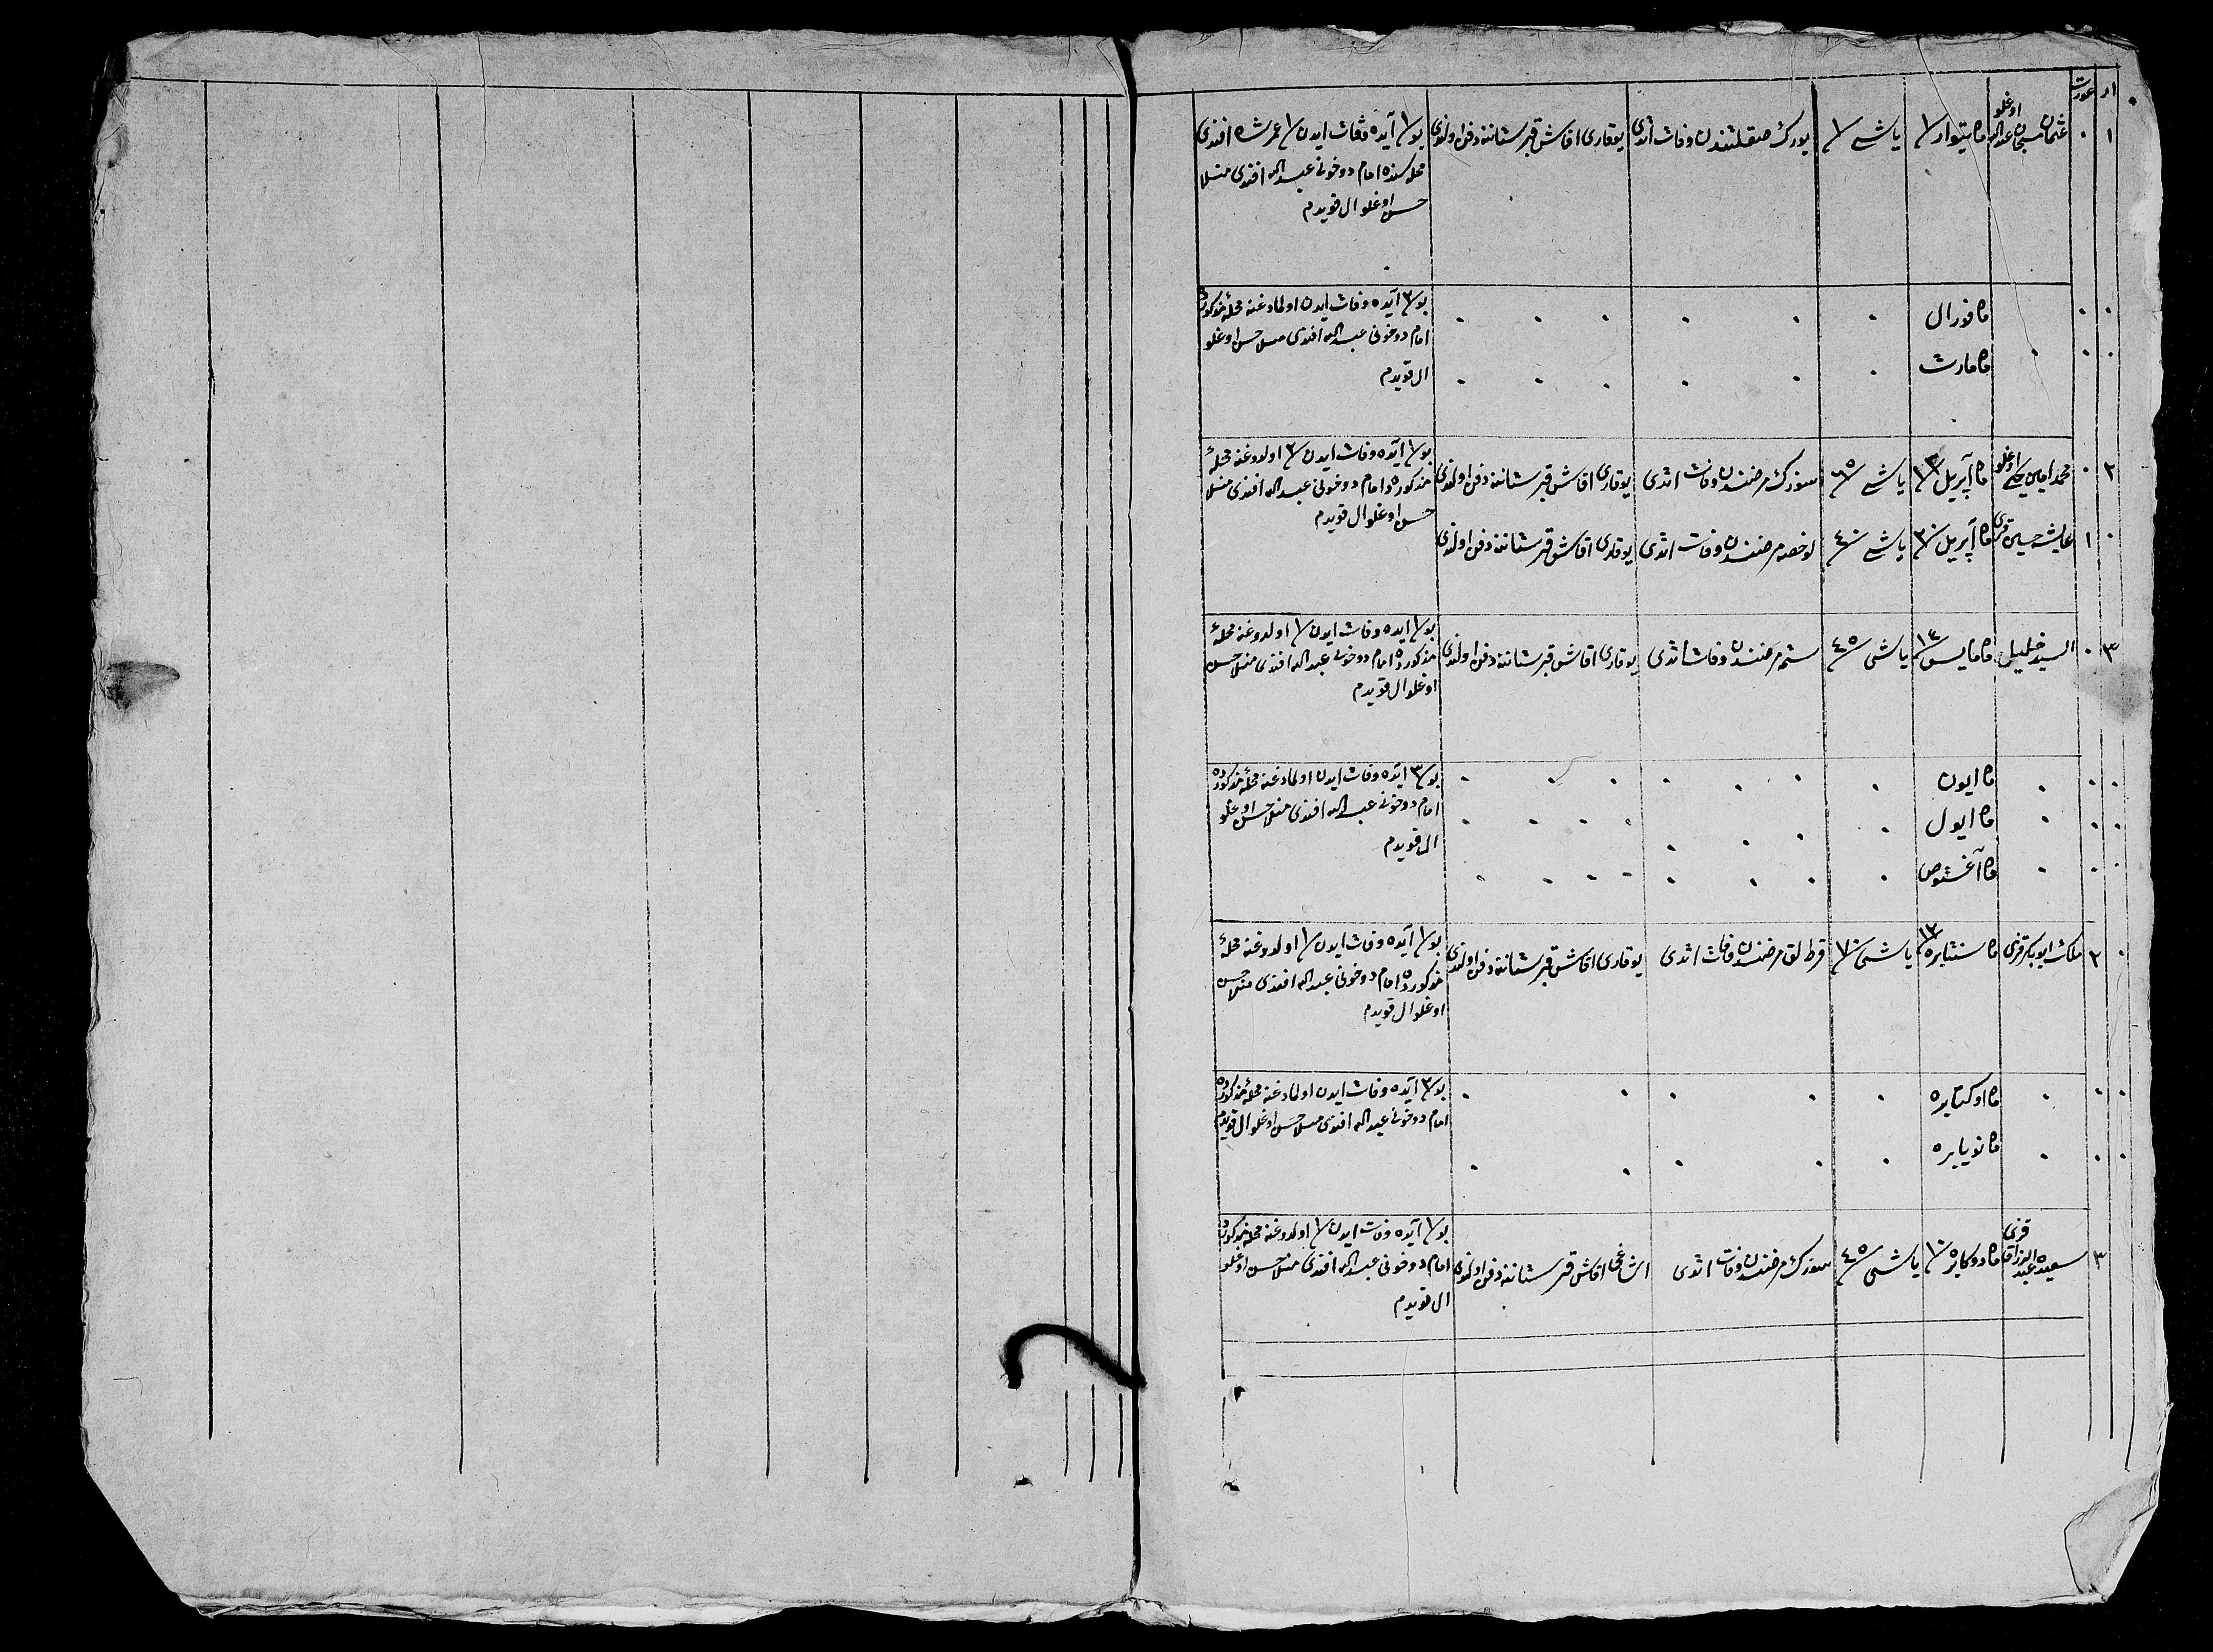 ار عورت
١ ٠ عثمان سبحان عبدالله اوغلو ماه یتوار ١ یاشے ١ یورك صقلتندن وفات اتدی یوقاری اقاش قبرستاننه دفن اولندی بو ١ آیده وفات ایدن ١ عمر شاه افندی
محله سنده امام دوخونی عبدالله افندی منلا
حسن اوغلو ال قویدم
ماه فورال بو ٣ آیده وفات ایدن اولمادغنه محلهٔ مذکورده
امام دوخونی عبدالله افندی منلا حسن اوغلو
ماه مارت ال قویدم
٢ ٠ محمد امین اوغلو ماه آپریل ١٣ یاشے ٦٥ سوزرك مرضندن وفات اتدی یوقاری اقاش قبرستاننه دفن اولندی بو ١ آیده وفات ایدن ٢ اولدوغنه محلهٔ
مذکورده امام دوخونی عبدالله افندی منلا
حسن اوغلو ال قویدم
٠ ١ عایشه حسین قزی ماه آپریل ٣٠ یاشے ٤٠ لوخصه مرضندن وفات اتدی یوقاری اقاش قبرستاننه دفن اولندی
٣ ٠ السید خلیل ماه مایس ١٤ یاشی ٤٥ ستمه مرضندن وفات اتدی یوقاری اقاش قبرستاننه دفن اولندی بو ١ ایده وفات ایدن ١ اولدوغنه محلهٔ
مذکورده امام دوخونی عبدالله افندی منلا حسن
اوغلو ال قویدم
ماه ایون بو ٣ آیده وفات ایدن اولمادغنه محلهٔ مذکورده
ماه ایول امام دوخونی عبدالله افندی منلا حسن اوغلو
ال قویدم
ماه آغستوص
٠ ٢ ملك ابوبکر قزی ماه سنتابره ١٣ یاشی ٧٠ قرط لق مرضندن وفات اتدی یوقاری اقاش قبرستاننه دفن اولندی بو ١ آیده وفات ایدن ١ اولدوغنه محلهٔ
مذکورده امام دوخونی عبدالله افندی منلا حسن
اوغلو ال قویدم
ماه اوکتابره بو ٣ آیده وفات ایدن اولمادغنه محلهٔ مذکورده
امام دوخونی عبدالله افندی منلا حسن اوغلو ال قویدم
ماه نویابره
٣ سعیده عبدالرزاق قزی ماه دوکابر ١٠ یاشی ٤٥ سوزرك مرضندن وفات اتدی اشاغی اقاش قبرستاننه دفن اولندی بو ١ آیده وفات ایدن ١ اولدوغنه محلهٔ مذکورده
امام دوخونی عبدالله افندی منلا حسن اوغلو
ال قویدم